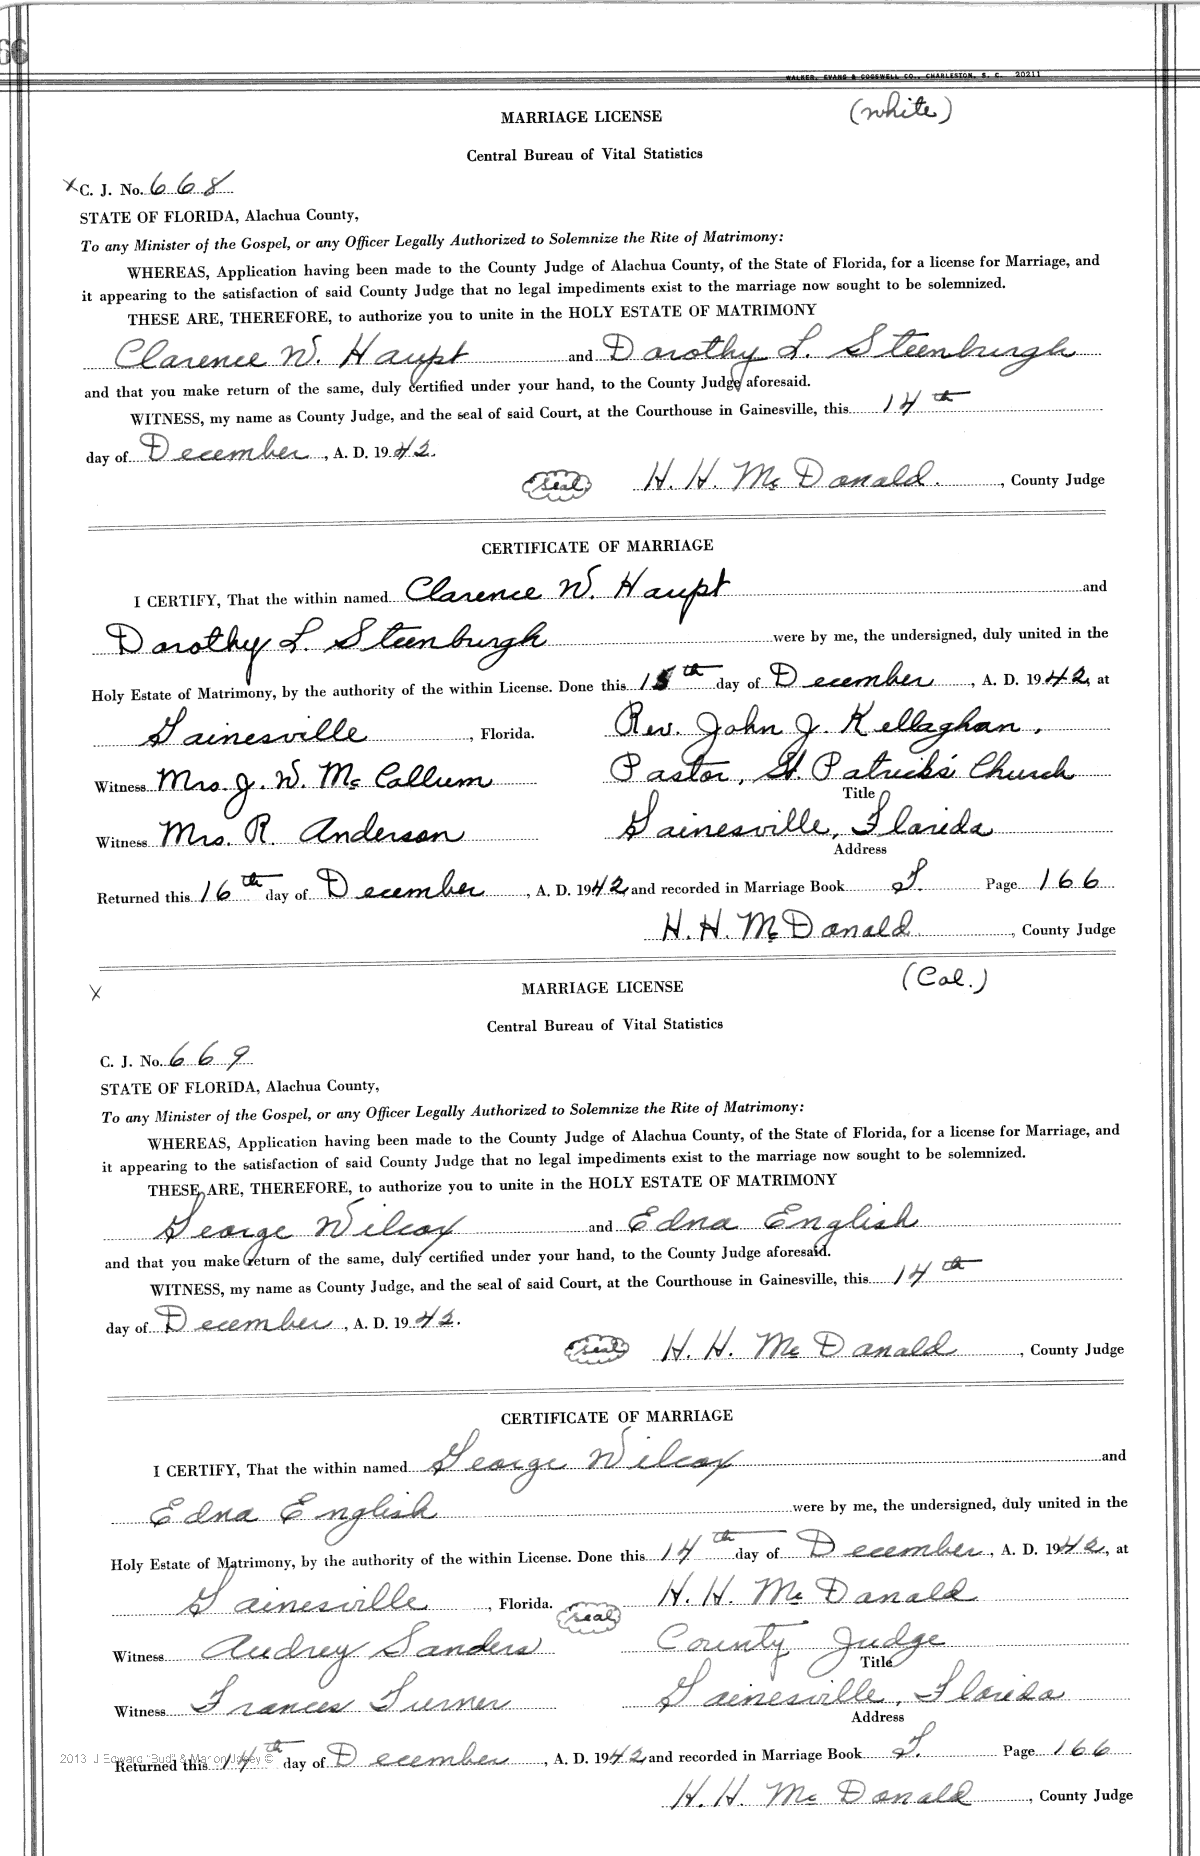 66
WALKER, EVANS & COGSWELL CO., CHARLESTON, S. C. 20211
MARRIAGE LICENSE (white)
Central Bureau of Vital Statistics
x C. J. No. 668
STATE OF FLORIDA, Alachua County,
To any Minister of the Gospel, or any Officer Legally Authorized to Solemnize the Rite of Matrimony:
WHEREAS, Application having been made to the County Judge of Alachua County, of the State of Florida, for a license for Marriage, and
it appearing to the satisfaction of said County Judge that no legal impediments exist to the marriage now sought to be solemnized.
THESE ARE, THEREFORE, to authorize you to unite in the HOLY ESTATE OF MATRIMONY
Clarence W. Haupt and Dorothy L. Steenburgh
and that you make return of the same, duly certified under your hand, to the County Judge aforesaid.
WITNESS, my name as County Judge, and the seal of said Court, at the Courthouse in Gainesville, this 14th
day of December, A. D. 1942.
seal H. H. McDonald., County Judge
CERTIFICATE OF MARRIAGE
I CERTIFY, That the within named Clarence W. Haupt and
Dorothy L. Steenburgh were by me, the undersigned, duly united in the
Holy Estate of Matrimony, by the authority of the within License. Done this 15th day of December, A. D. 1942, at
Gainesville, Florida. Rev. John J. Kellaghan,
Witness Mrs. J. W. McCollum Pastor, St. Patrick's Church
Title
Witness Mrs. R. Anderson Gainesville, Florida
Address
Returned this 16th day of December, A. D. 1942 and recorded in Marriage Book T. Page 166
H. H. McDonald, County Judge
x MARRIAGE LICENSE (Col.)
Central Bureau of Vital Statistics
C. J. No. 669
STATE OF FLORIDA, Alachua County,
To any Minister of the Gospel, or any Officer Legally Authorized to Solemnize the Rite of Matrimony:
WHEREAS, Application having been made to the County Judge of Alachua County, of the State of Florida, for a license for Marriage, and
it appearing to the satisfaction of said County Judge that no legal impediments exist to the marriage now sought to be solemnized.
THESE ARE, THEREFORE, to authorize you to unite in the HOLY ESTATE OF MATRIMONY
George Wilcox and Edna English
and that you make return of the same, duly certified under your hand, to the County Judge aforesaid.
WITNESS, my name as County Judge, and the seal of said Court, at the Courthouse in Gainesville, this 14th
day of December, A. D. 1942.
seal H. H. McDonald, County Judge
CERTIFICATE OF MARRIAGE
I CERTIFY, That the within named George Wilcox and
Edna English were by me, the undersigned, duly united in the
Holy Estate of Matrimony, by the authority of the within License. Done this 14th day of December, A. D. 1942, at
Gainesville, Florida. seal H. H. McDonald
Witness Audrey Sanders County Judge
Title
Witness Frances Turner Gainesville, Florida
Address
2013 J Edward "Bud" & Marion
Returned this 14th day of December, A. D. 1942 and recorded in Marriage Book T. Page 166
H. H. McDonald, County Judge